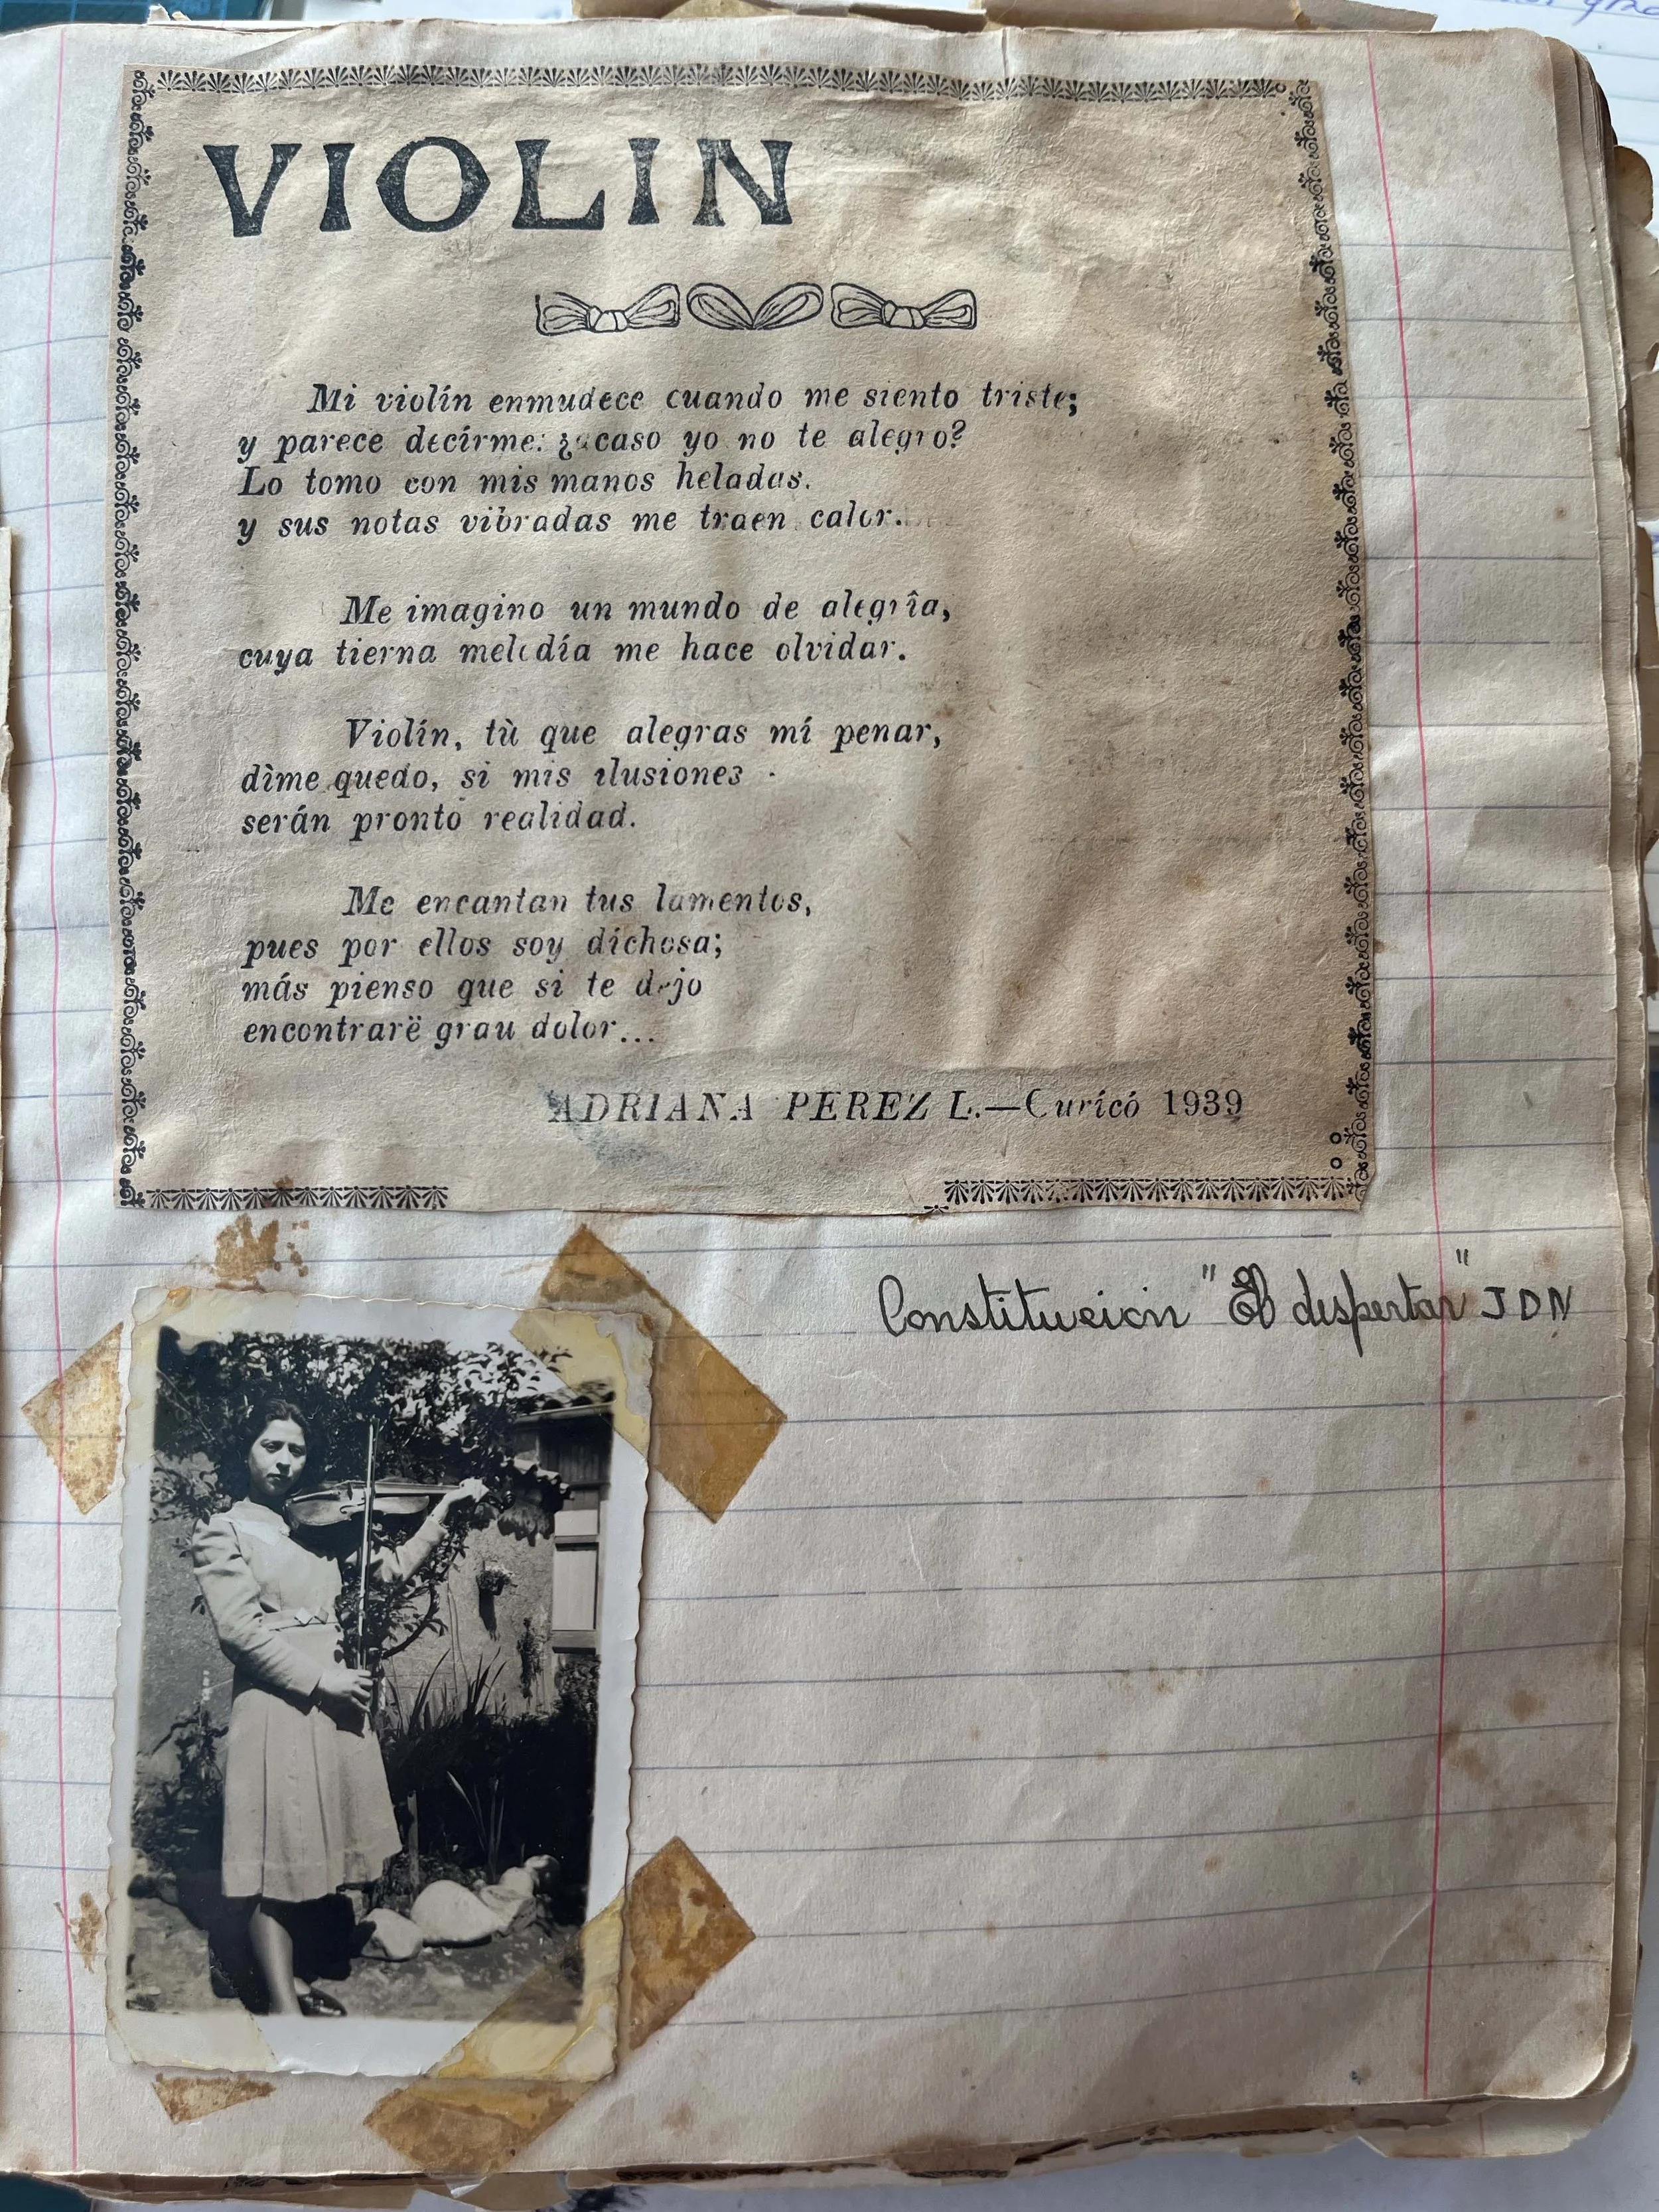 VIOLIN
Mi violín enmudece cuando me siento triste;
y parece decírme: ¿acaso yo no te alegro?
Lo tomo con mis manos heladas.
y sus notas vibradas me traen calor.
Me imagino un mundo de alegrîa,
cuya tierna melodía me hace olvidar.
Violín, tù que alegras mí penar,
dìme quedo, si mis ilusiones
serán pronto realidad.
Me encantan tus lamentos,
pues por ellos soy díchosa;
más pienso que si te dejo
encontrarë grau dolor...
ADRIANA PEREZ L.—Curícó 1939
Constitución "El despertar" J D N